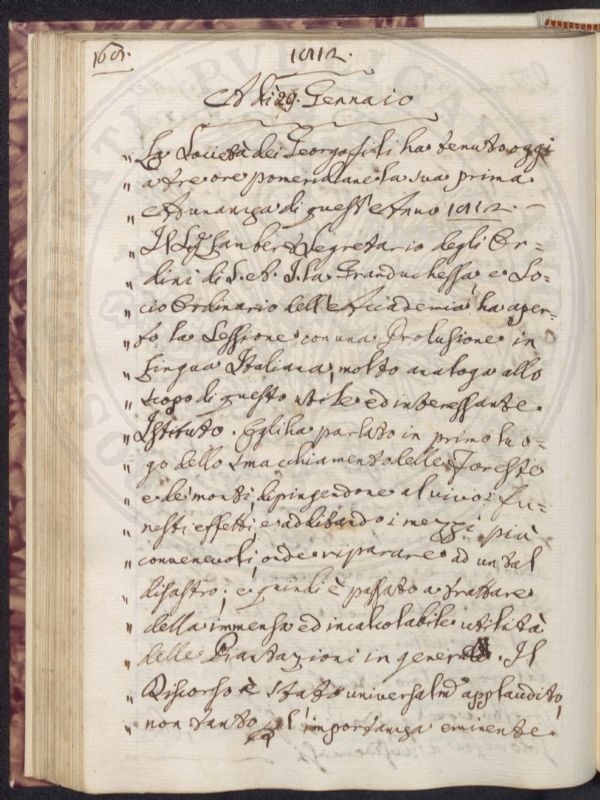 1812.
A dì 29. Gennaio
" La Società dei Georgofili ha tenuto oggi
" a tre ore pomeridiane la sua prima
" Adunanza di quest'Anno 1812. -
" Il Sig.r Lambert Segretario degli Or=
" dini di S. A. I. la Granduchessa, e So=
" cio Ordinario dell'Accademia, ha aper=
" to la Sessione con una Prolusione in
" Lingua Italiana, molto analoga allo
" scopo di questo utile ed interessante
" Istituto. Egli ha parlato in primo luo=
" go dello smacchiamento delle Foreste
" e dei monti, dipingendone al vivo i fu=
" nesti effetti, e additando i mezzi più
" convenevoli, onde riparare ad un tal
" disastro; e quindi è passato a trattare
" della immensa ed incalcolabile utilità
" delle Piantazioni in generale. Il
" Discorso è stato universalm.e applaudito,
" non tanto l'importanza eminente